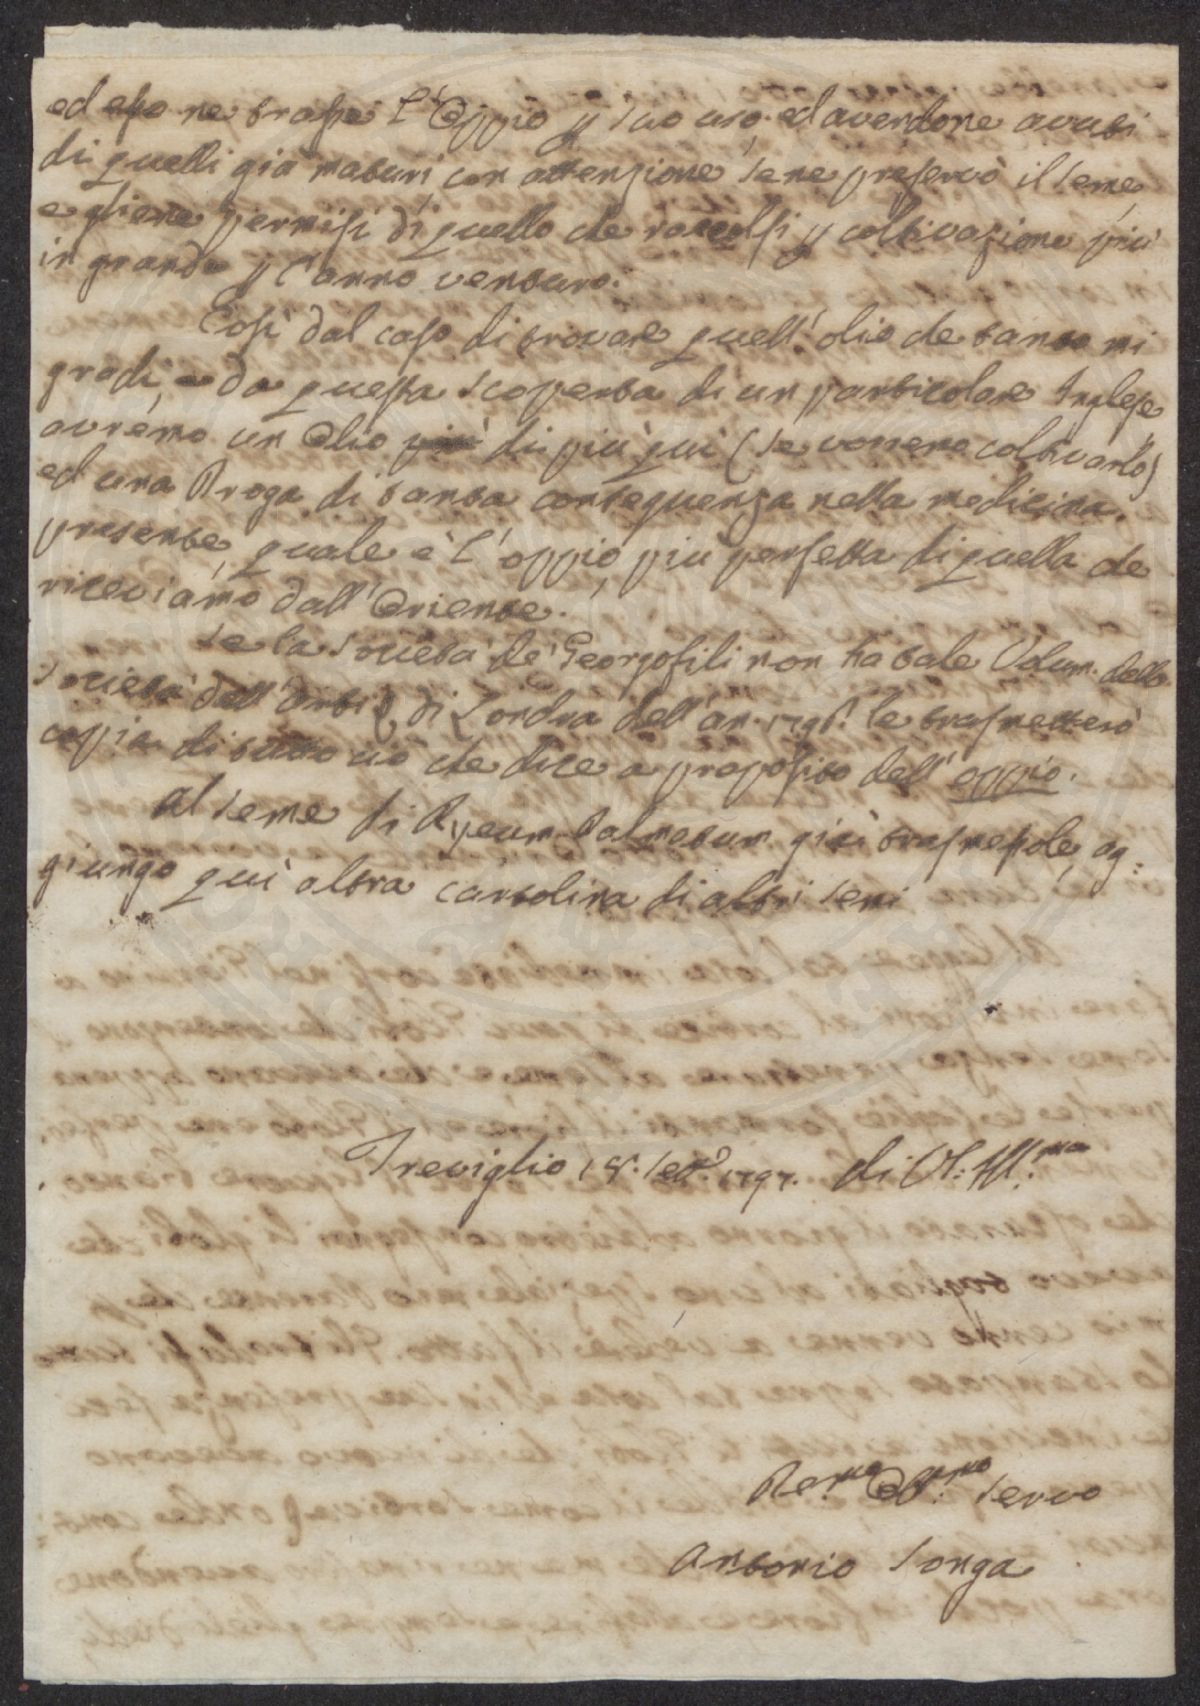 ed esso ne trasse l'Oppio p suo uso. ed avendone avuti
di quelli già maturi con attenzione se ne preservò il seme,
e gliene permisi di quello che raccolsi p coltivazione più
in grande p l'anno venturo.
Così dal caso di trovare quell'olio che tanto mi
gradì, e da questa scoperta di un particolare Inglese
avremo un Olio di più quì (se vorremo coltivarlo)
ed una Droga di tanta conseguenza nella medicina
presente, quale è l'oppio, più perfetta di quella che
riceviamo dall'Oriente.
Se la Società de' Georgofili non ha tale Volum. della
Società dell'Arti di Londra dell'an. 1796. le trasmetterò
coppia di tutto ciò che dice a proposito dell'oppio.
Al seme di Rheum Palmatum già trasmessole, ag:
giungo quì altra cartolina di altri semi
Treviglio 18. Sett.e 1797. di V. S. Ill.ma
De.mo Obb.mo Servo
Antonio Songa